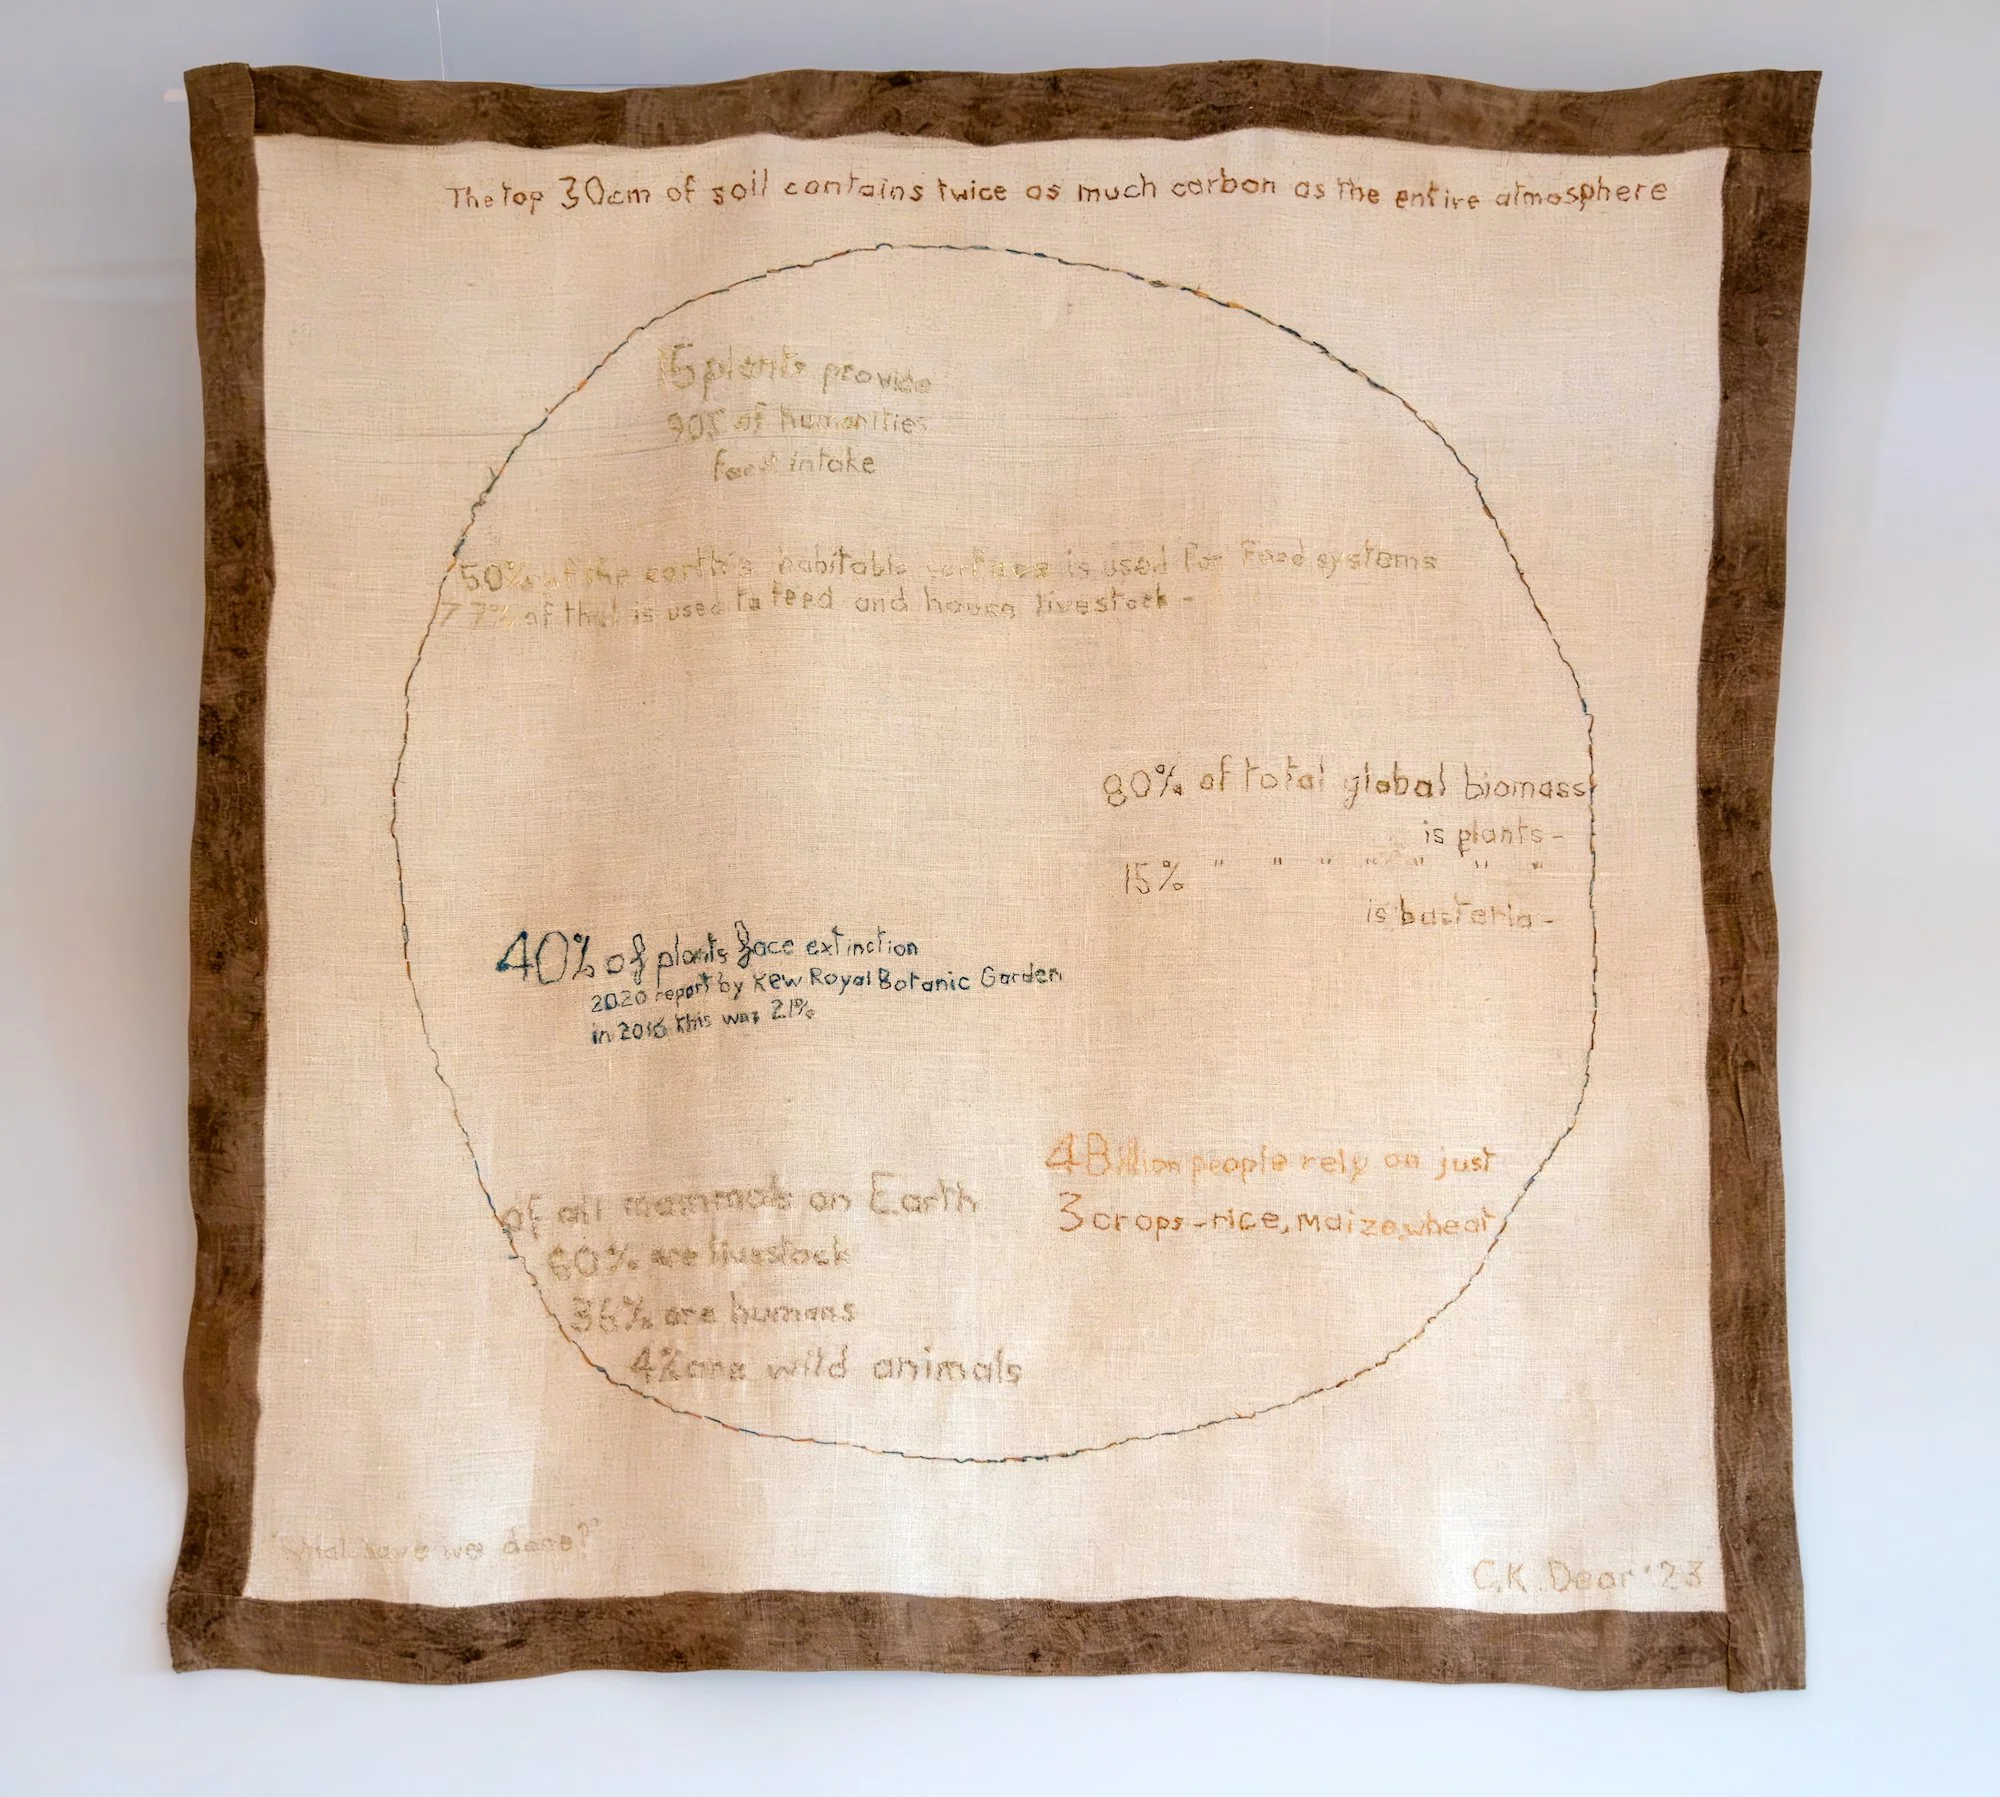 The top 30cm of soil contains twice as much carbon as the entire atmosphere
15 plants provide
90% of humanities
food intake
50% of the earth's habitable surface is used for food systems
77% of that is used to feed and house livestock -
80% of total global biomass
is plants -
15% " " " " " " "
is bacteria -
40% of plants face extinction
2020 report by Kew Royal Botanic Garden
in 2016 this was 21%
4 Billion people rely on just
3 crops - rice, maize, wheat
of all mammals on Earth
60% are livestock
36% are humans
4% are wild animals
"What have we done?"
C.K. Dear '23